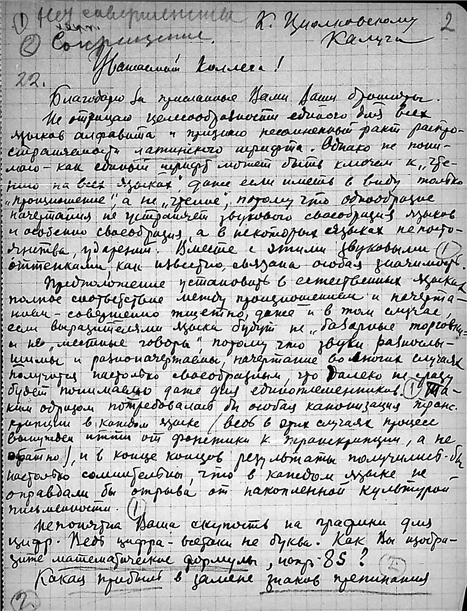 ① Несовершенства
② Сокращение.
К. Циолковскому
Калуга
2
Уважаемый Коллега!
22.
Благодарю за присланные Вами Ваши брошюры.
Не отрицаю целесообразности единого для всех
языков алфавита и признаю несомненный факт распро-
страняемости латинского шрифта. Однако не пони-
маю как единый шрифт может быть ключем к "чте-
нию на всех языках" даже если иметь в виду только
"произношение" а не "чтение", потому что однообразие
начертания не устраняет звукового своеобразия языков
и особенно своеобразия, а в некоторых языках непосто-
янства, ударений. Вместе с этими звуковыми ①
оттенками, как известно, связана особая значимость.
Предположение установить в естественных языках
полное соответствие между произношением и начерта-
нием - совершенно тщетно, даже и в том случае
если выразителями языка будут не "базарные торговцы"
и не "местные говоры" потому что звуки
и разноначертаемы, начертание во многих случаях
получится настолько своеобразным, что далеко не сразу
будет понимаемо даже для единоплеменников. ① Та-
ким образом потребовалась бы особая канонизация транс-
крипции в каждом языке (ведь в этих случаях процесс
вынужден итти от фонетики к транскрипции, а не
обратно), и в конце концов результаты получились бы
настолько сомнительны, что в каждом языке не
оправдали бы отрыва от накопленной культурой
письменности. ①
Непонятна Ваша скупость на графики для
цифр. Ведь цифра - всетаки не буква. Как Вы изобра-
зите математические формулы, напр. 85?
Какая прибыль в замене знаков препинания
2.